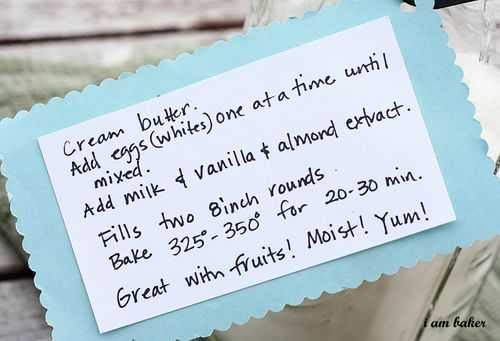 Cream butter.
Add eggs (whites) one at a time until
mixed.
Add milk & vanilla & almond extract.
Fills two 8inch rounds.
Bake 325°-350° for 20-30 min.
Great with fruits! Moist! Yum!
i am baker